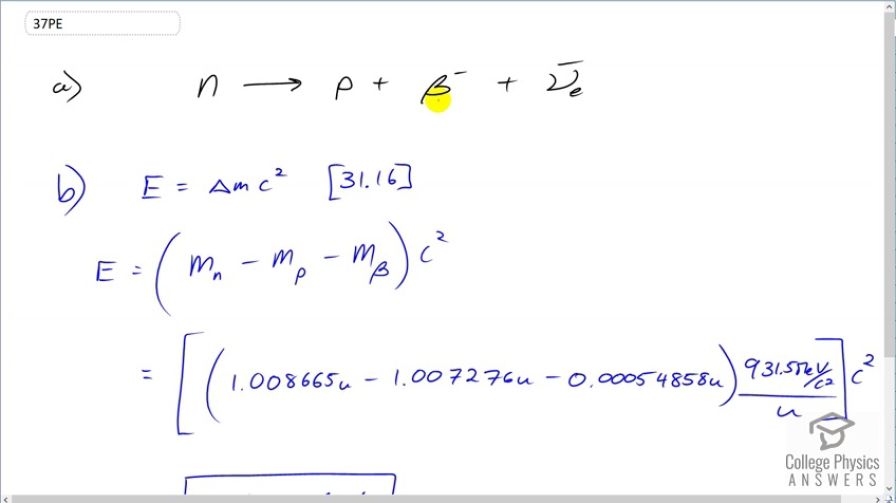 37PE
a) n → p + β⁻ + ν̄ₑ
b) E = Δmc² [31.16]
E = (mₙ − mₚ − mᵦ)c²
= [(1.008665u − 1.007276u − 0.00054858u) 931.5 MeV/c² / u] c²
College Physics
ANSWERS